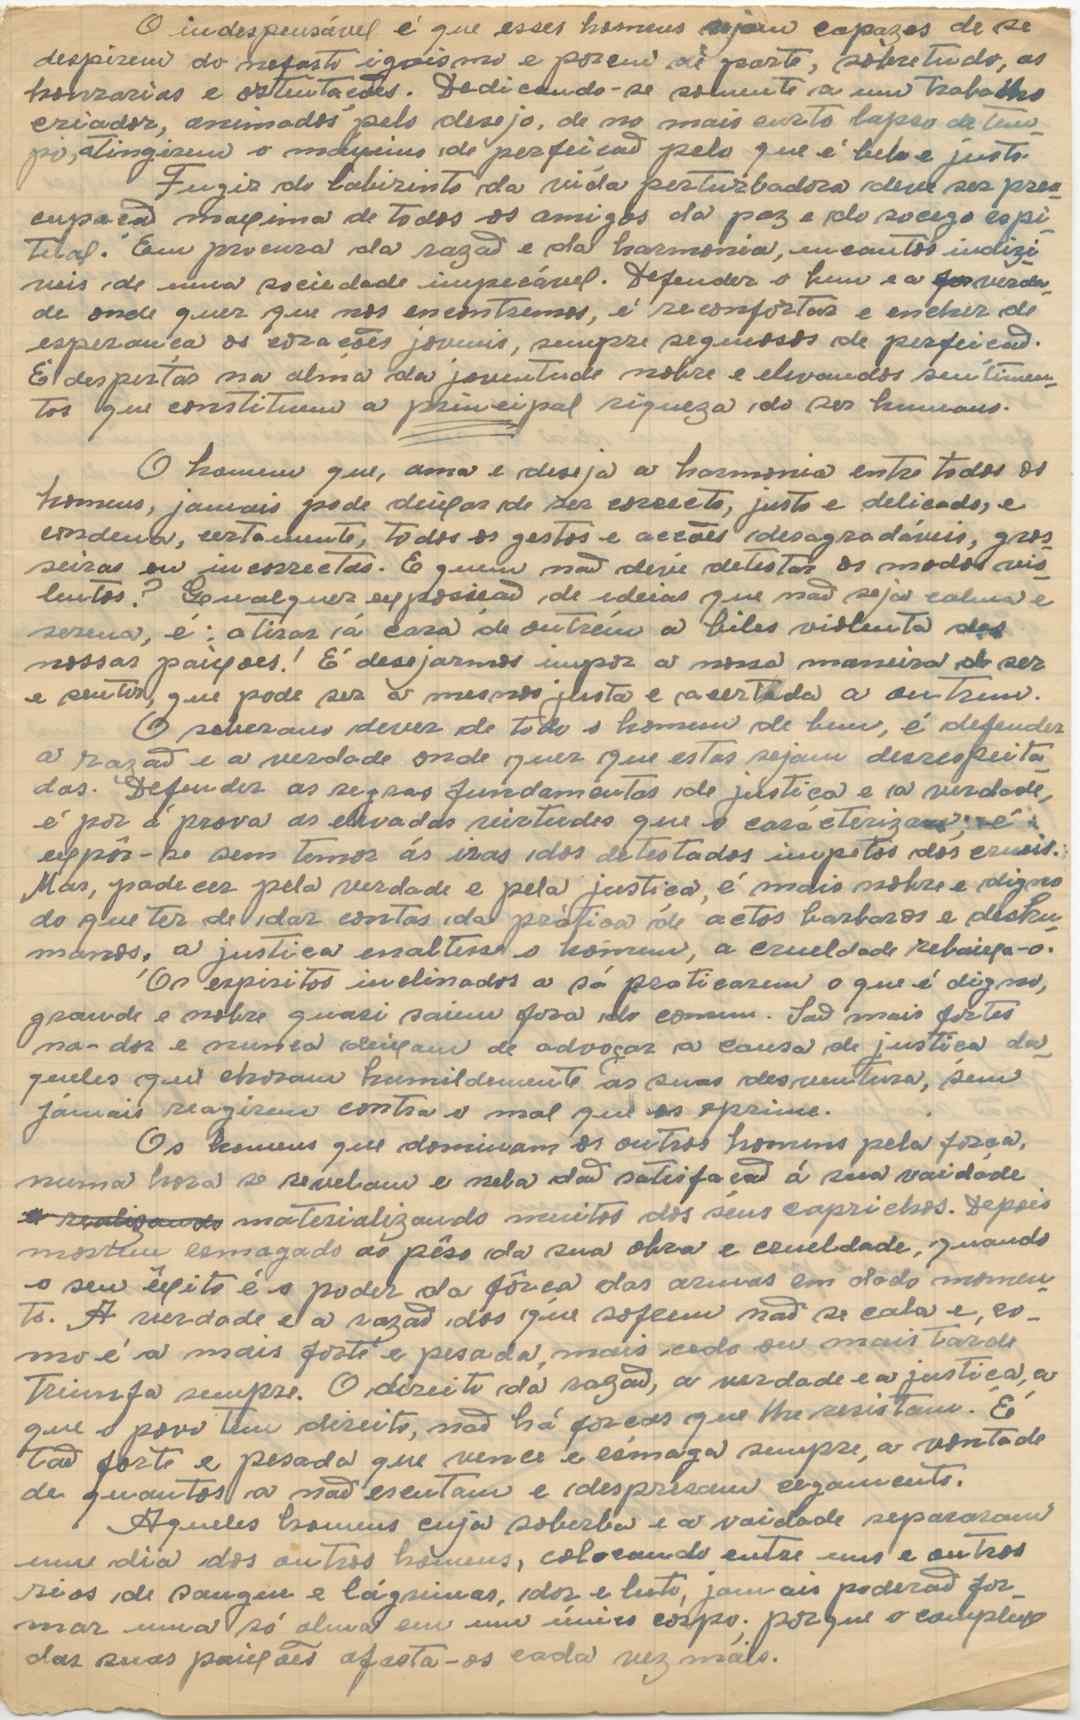 O indespensável é que esses homens sejam capazes de se
despirem do nefasto igoismo e porem de parte, sòbretudo, as
honrarias e ostentações. Dedicando-se somente a um trabalho
criador, animados pelo desejo, de no mais curto lapso de tem-
po, atingirem o máximo de perfeicão pelo que é belo e justo.
Fugir do labirinto da vida perturbadora deve ser preo-
cupacão maxima de todos os amigos da paz e do socego espi-
ritual. Em procura da razão e da harmonia, encantos indizi
veis de uma sociedade impecável. Defender o bem e a verda-
de onde quer que nos encontremos, é reconfortar e encher de
esperança os corações jovenis, sempre seqüosos de perfeicão.
É despertar na alma da joventude nobre e elevandos sentimen-
tos que constituem a principal riqueza do ser humano.
O homem que, ama e deseja a harmonia entre todos os
homens, jamais pode deixar de ser correcto, justo e delicado, e
condena, certamente, todos os gestos e acções desagradáveis, gros-
seiras ou incorrectas. E quem não deve detestar os modos vio-
lentos? Qualquer exposicão de ideias que não seja calma e
serena, é: atirar á cara de outrém a biles violenta das
nossas paixoes! É desejarmos impor a nossa maneira de ser
e sentir, que pode ser a menos justa e acertada a outrem.
O soberano dever de todo o homem de bem, é defender
a razão e a verdade onde quer que estas sejam desrespeita-
das. Defender as regras fundamentas de justiça e a verdade,
é pôr á prova as elevadas virtudes que o carácterizam, é
expôr-se sem temor ás iras dos detestados impetos dos crueis.
Mas, padecer pela verdade e pela justiça, é mais nobre e digno
do que ter de dar contas da prática de actos barbaros e deshu-
manos, a justiça enaltesse o homem, a crueldade rebaixa-o.
Os espiritos inclinados a só praticarem o que é digno,
grande e nobre quasi saiem fora do comum. São mais fortes
na dor e nunca deixam de advogar a causa de justiça da-
queles que choram humildemente as suas desventura, sem
jámais reagirem contra o mal que os oprime.
Os homens que dominam os outros homens pela força,
numa hora se revelam e nela dão satisfacão á sua vaidade
materializando muitos dos séus caprichos. Depois
morrem esmagado ao pêso da sua obra e crueldade, quando
o seu êxito é o poder da fôrça das armas em dado momen
to. A verdade e a razão dos que sofrem não se cala e, co-
mo é a mais forte e pesada, mais cedo ou mais tarde
triunfa sempre. O direito da razão, a verdade e a justiça, a
que o povo tem direito, não há forças que lhe resistam. É
tão forte e pesada que vence e esmaga sempre, a vontade
de quantos a não escutam e despresam cégamente.
Aqueles homens cuja soberba e a vaidade separaram
um dia dos outros homens, colocando entre uns e outros
rios de sangue e lágrimas, dor e luto, jamais poderão for-
mar uma só alma em um único corpo; porque o complexo
das suas paixões afasta-os cada vez mais.